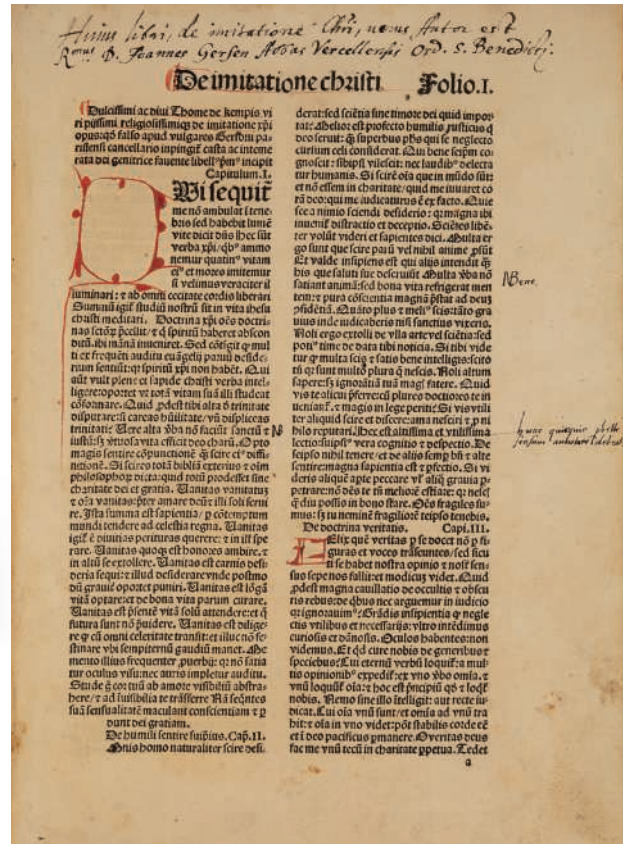 Huius libri, de imitatione Chri, uerus Autor est
Rmus D. Joannes Gersen Abbas Vercellensis Ord. S. Benedicti.
De imitatione christi Folio.I.
Dulcissimi ac diui Thome de kempis vi
ri pijssimi religiosissimiqȝ de imitatione xp̄i
opus:qȝ falso apud vulgares Gersoni pa-
risiensi cancellario inpingit̄ casta ac inteme
rata dei genitrice fauente libellꝰ p̄mꝰ incipit
Capitulum.I.
Qui sequit̄
me nō ambulat ī tene-
bris sed habebit lumē
vite dicit dn̄s ihec sūt
verba xp̄i/qͥbꝰ ammo
nemur quatinꝰ vitam
eiꝰ et mores imitemur
si velimus veraciter il
luminari: ⁊ ab omni cecitate cordis liberari
Summū igit̄ studiū nostrū sit in vita ihesu
christi meditari. Doctrina xp̄i oēs doctri-
nas sctōꝝ p̄cellit/ ⁊ q̄ spiritū haberet abscon
ditū.ibi māna inueniret. Sed cōtigit qͣ mul
ti ex frequēti auditu euāgelij paruū deside-
rium sentiūt:qꝛ spiritū xp̄i non habēt. Qui
aūt vult plene et sapide christi verba intel-
ligere:oportet vt totā vitam suā illi studeat
cōformare. Quid ꝓdest tibi alta d̄ trinitate
disputare:si careas hūilitate/vn̄ displiceas
trinitati: Uere alta v̄ba nō faciūt sanctū ⁊
iustū:sȝ v̓tuosa vita efficit deo charū. Opto
magis sentire cōpunctionē q̄ scire eiꝰ diffi-
nitionē. Si scires totā bibliā exterius ⁊ oīm
philosophoꝝ dicta:quid totū prodesset sine
charitate dei et gratia. Uanitas vanitatuȝ
⁊ oīa vanitas:p̄ter amare deū ⁊ illi soli serui
re. Ista summa est sapientia/ ꝑ cōtemptum
mundi tendere ad celestia regna. Uanitas
igit̄ ē diuitias perituras querere: ⁊ in ill' spe
rare. Uanitas quoqȝ est honores ambire, ⁊
in altū se extollere. Uanitas est carnis desi-
deria sequi: ⁊ illud desiderare vnde postmo
dū grauiť oportet puniri. Uanitas est lōgā
vitā optare:et de bona vita parum curare.
Uanitas est p̄sentē vitā solū attendere:et q̄
futura sunt nō p̄uidere. Uanitas est dilige-
re qͩ cū omni celeritate transit:et illuc nō fe-
stinare vbi sempiternū gaudiū manet. Me
mento illius frequenter ꝓuerbij: qꝛ nō satia
tur oculus visu:nec auris impletur auditu.
Stude g̊ cor tuū ab amore visibiliū abstra-
here/ ⁊ ad īuisibilia te trāsferre Nā seq̄ntes
suā sensualitatē maculant conscientiam ⁊ ꝑ
dunt dei gratiam.
De humili sentire suiip̄ius. Cap̄.II.
Omnis homo naturaliter scire desi-
derat:sed sciētia sine timore dei quid impor
tat: Melior est profecto humilis rusticus q̄
deo seruit: q̄ superbus ph̄s qui se neglecto
cursum celi considerat. Qui bene seip̄m co-
gnoscit: sibiip̄i vilescit: nec laudibꝰ delecta
tur humanis. Si scirē oīa que in mūdo sūt:
et nō essem in charitate/quid me iuuaret co
rā deo:qui me iudicaturus ē ex facto. Quie
sce a nimio sciendi desiderio: qꝛ magna ibi
inuenit̄ distractio et deceptio. Sciētes libē-
ter volūt videri et sapientes dici. Multa er
go sunt que scire parū vel nihil anime ꝓsūt
Et valde insipiens est qui alijs intendit q̄
his que saluti sue deseruiūt Multa v̄ba nō
satiant animā:sed bona vita refrigerat men
tem: ⁊ pura cōscientia magnā p̄stat ad deuȝ
ꝯfidētiā. Quāto plus ⁊ meliꝰ scis:tāto gra
uius inde iudicaberis nisi sanctius vixeris.
Noli ergo extolli de vlla arte vel sciētia:sed
potiꝰ time de data tibi noticia. Si tibi vide
tur qꝛ multa scis ⁊ satis bene intelligis:scito
tn̄ qꝛ sunt multo plura q̄ nescis. Noli altum
sapere:sȝ ignorātiā tuā magꝭ fatere. Quid
vis te alicui p̄ferre:cū plures doctiores te in
ueniant̄. ⁊ magis in lege periti: Si vis vtili
ter aliquid scire et discere:ama nesciri ⁊ ꝓ ni
hilo reputari. Hec est altissima et vtilissima
lectio:suiip̄iꝰ vera cognitio ⁊ despectio. De
seipso nihil tenere/et de alijs semꝑ bn̄ ⁊ alte
sentire:magna sapientia est ⁊ ꝑfectio. Si vi
deris aliquē apte peccare vl' aliq̄ grauia ꝑ-
petrare:nō dēs te tn̄ meliorē estiare: qꝛ nescȷ
q̄ diu possis in bono stare. Oēs fragiles su
mus: sȝ tu neminē fragiliorē teipso tenebis.
De doctrina veritatis. Capi.III.
Felix quē veritas ꝑ se docet nō ꝑ fi-
guras et voces trāseuntes/sed sicu
ti se habet nostra opinio ⁊ nosť sen-
sus sepe nos fallit:et modicuȝ videt. Quid
ꝓdest magna cauillatio de occultis ⁊ obscu
ris rebus:de qͥbus nec arguemur in iudicio
qꝛ ignorauimꝰ: Grādis insipientia qꝛ negle
ctis vtilibus et necessarijs:vltro intēdimus
curiosis et dānosis. Oculos habentes:non
videmus. Et qd̄ cure nobis de generibus ⁊
speciebus: Cui eternū verbū loquit̄:a mul-
tis opinionibꝰ expedit̄:ex vno v̄bo omīa. ⁊
vnū loquūt̄ oīa: ⁊ hoc est p̄ncipiū qȝ ⁊ loqt̄
nobis. Nemo sine illo ītelligit: aut recte iu-
dicat. Cui oīa vnū sunt/et omīa ad vnū tra
hit: ⁊ oīa in vno videt:pōt stabilis corde eē
et ī deo pacificus ꝑmanere. O veritas deus
fac me vnū tecū in charitate ꝑpetua. Tedet
a
NBene.
N